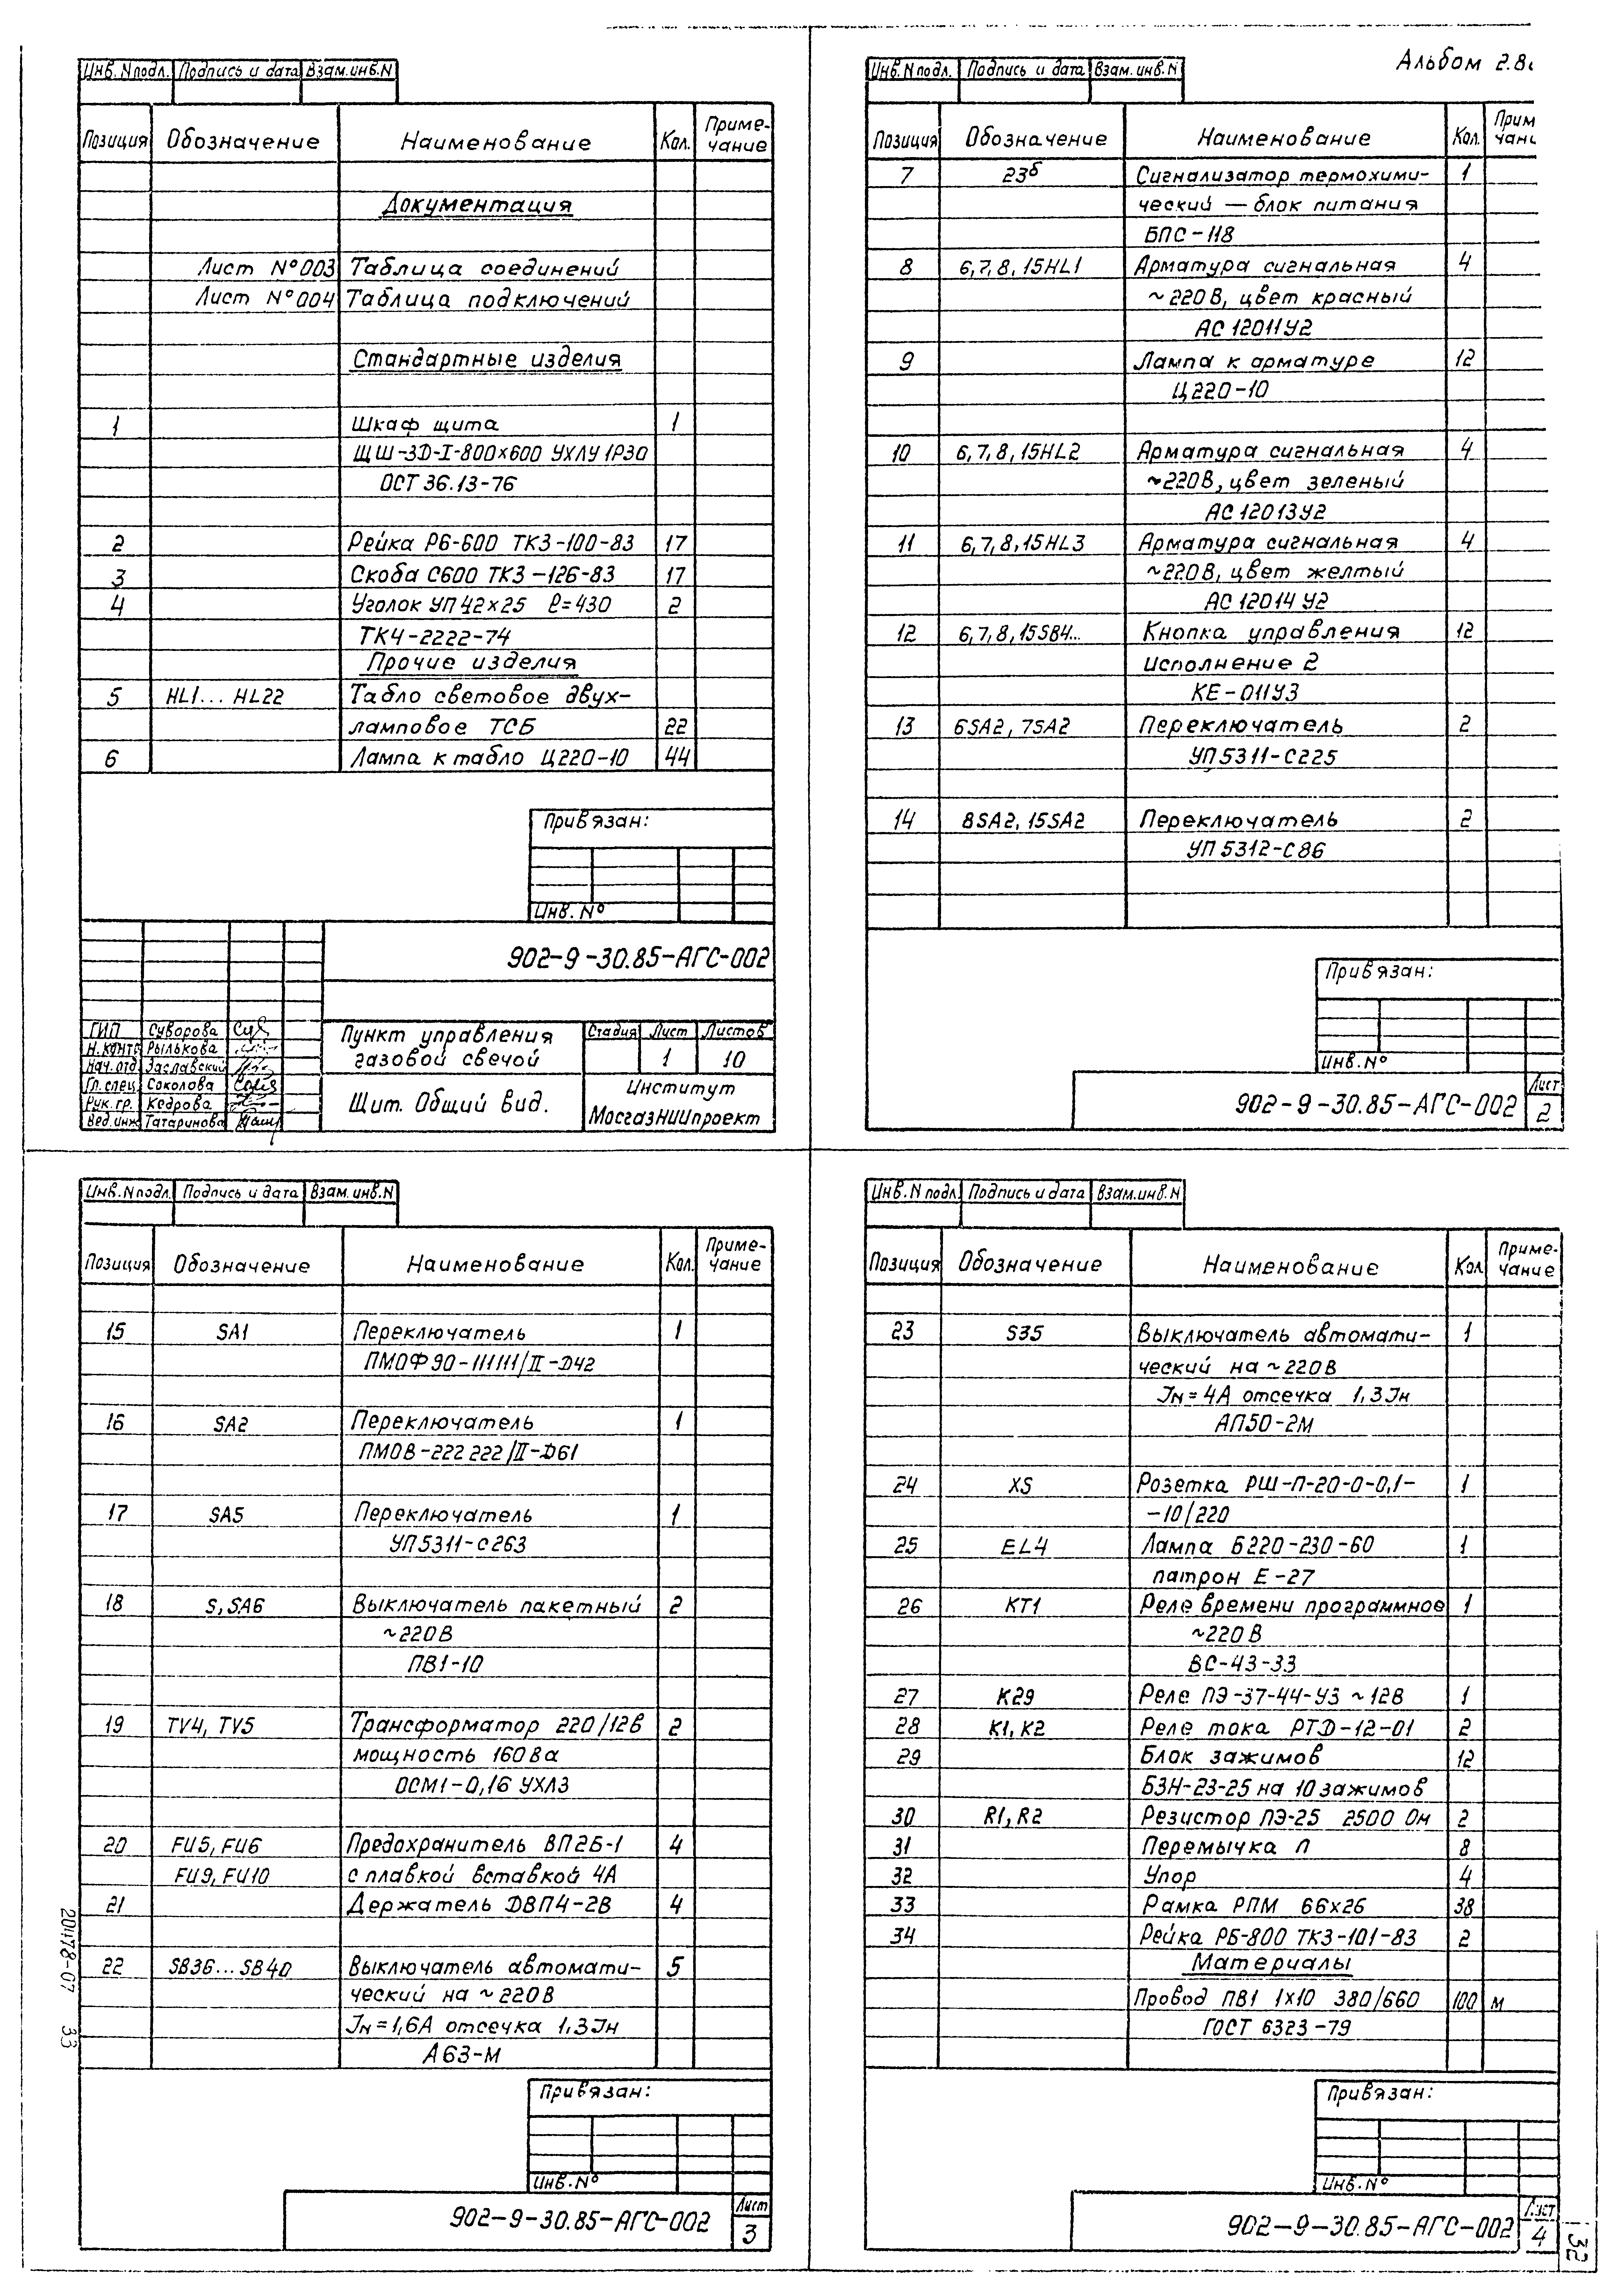 Альбом 2.8
Инв. N подл. Подпись и дата Взам. инв. N
Позиция Обозначение Наименование Кол. Приме-
чание
Документация
Лист N° 003 Таблица соединений
Лист N° 004 Таблица подключений
Стандартные изделия
1 Шкаф щита 1
ЩШ-ЗД-I-800×600 УХЛ4 IP30
ОСТ 36.13-76
2 Рейка Р6-600 ТК3-100-83 17
3 Скоба С600 ТК3-126-83 17
4 Уголок УП 42×25 ℓ=430 2
ТК4-2222-74
Прочие изделия
5 HL1... HL22 Табло световое двух-
ламповое ТСБ 22
6 Лампа к табло Ц220-10 44
Привязан:
Инв. N°
902-9-30.85-АГС-002
ГИП Суворова
Н.контр Рылькова
Нач.отд Заславский
Гл.спец Соколова
Рук.гр. Кедрова
Вед.инж Татаринова
Пункт управления
газовой свечой
Стадия Лист Листов
1 10
Щит. Общий вид.
Институт
МосгазНИИпроект
Инв. N подл. Подпись и дата Взам. инв. N
Позиция Обозначение Наименование Кол. Прим
чани
7 23б Сигнализатор термохими- 1
ческий — блок питания
БПС-118
8 6,7,8,15HL1 Арматура сигнальная 4
~220В, цвет красный
АС 12011У2
9 Лампа к арматуре 12
Ц220-10
10 6,7,8,15HL2 Арматура сигнальная 4
~220В, цвет зеленый
АС 12013У2
11 6,7,8,15HL3 Арматура сигнальная 4
~220В, цвет желтый
АС 12014 У2
12 6,7,8,15SB4... Кнопка управления 12
исполнение 2
КЕ-011У3
13 6SA2, 7SA2 Переключатель 2
УП 5311-С225
14 8SA2, 15SA2 Переключатель 2
УП 5312-С86
Привязан:
Инв. N°
902-9-30.85-АГС-002
Лист
2
Инв. N подл. Подпись и дата Взам. инв. N
Позиция Обозначение Наименование Кол. Приме-
чание
15 SA1 Переключатель 1
ПМОФ90-111111/II-Д42
16 SA2 Переключатель 1
ПМОВ-222222/II-Д61
17 SA5 Переключатель 1
УП5311-С263
18 S, SA6 Выключатель пакетный 2
~220В
ПВ1-10
19 TV4, TV5 Трансформатор 220/12в 2
мощность 160ва
ОСМ1-0,16 УХЛ3
20 FU5, FU6 Предохранитель ВП2Б-1 4
FU9, FU10 с плавкой вставкой 4А
21 Держатель ДВП4-2В 4
22 SB36... SB40 Выключатель автомати- 5
ческий на ~220В
Jн=1,6А отсечка 1,3Jн
А63-М
Привязан:
Инв. N°
902-9-30.85-АГС-002
Лист
3
20478-07 33
Инв. N подл Подпись и дата Взам. инв. N
Позиция Обозначение Наименование Кол Приме-
чание
23 S35 Выключатель автомати- 1
ческий на ~220В
Jн=4А отсечка 1,3Jн
АП50-2М
24 XS Розетка РШ-П-20-0-0,1- 1
-10/220
25 EL4 Лампа Б220-230-60 1
патрон Е-27
26 KT1 Реле времени программное 1
~220В
ВС-43-33
27 K29 Реле ПЭ-37-44-У3 ~12В 1
28 K1, K2 Реле тока РТД-12-01 2
29 Блок зажимов 12
БЗН-23-25 на 10 зажимов
30 R1, R2 Резистор ПЭ-25 2500 Ом 2
31 Перемычка П 8
32 Упор 4
33 Рамка РПМ 66×26 38
34 Рейка РБ-800 ТК3-101-83 2
Материалы
Провод ПВ1 1×10 380/660 100 м
ГОСТ 6323-79
Привязан:
Инв. N°
902-9-30.85-АГС-002
Лист
4
32